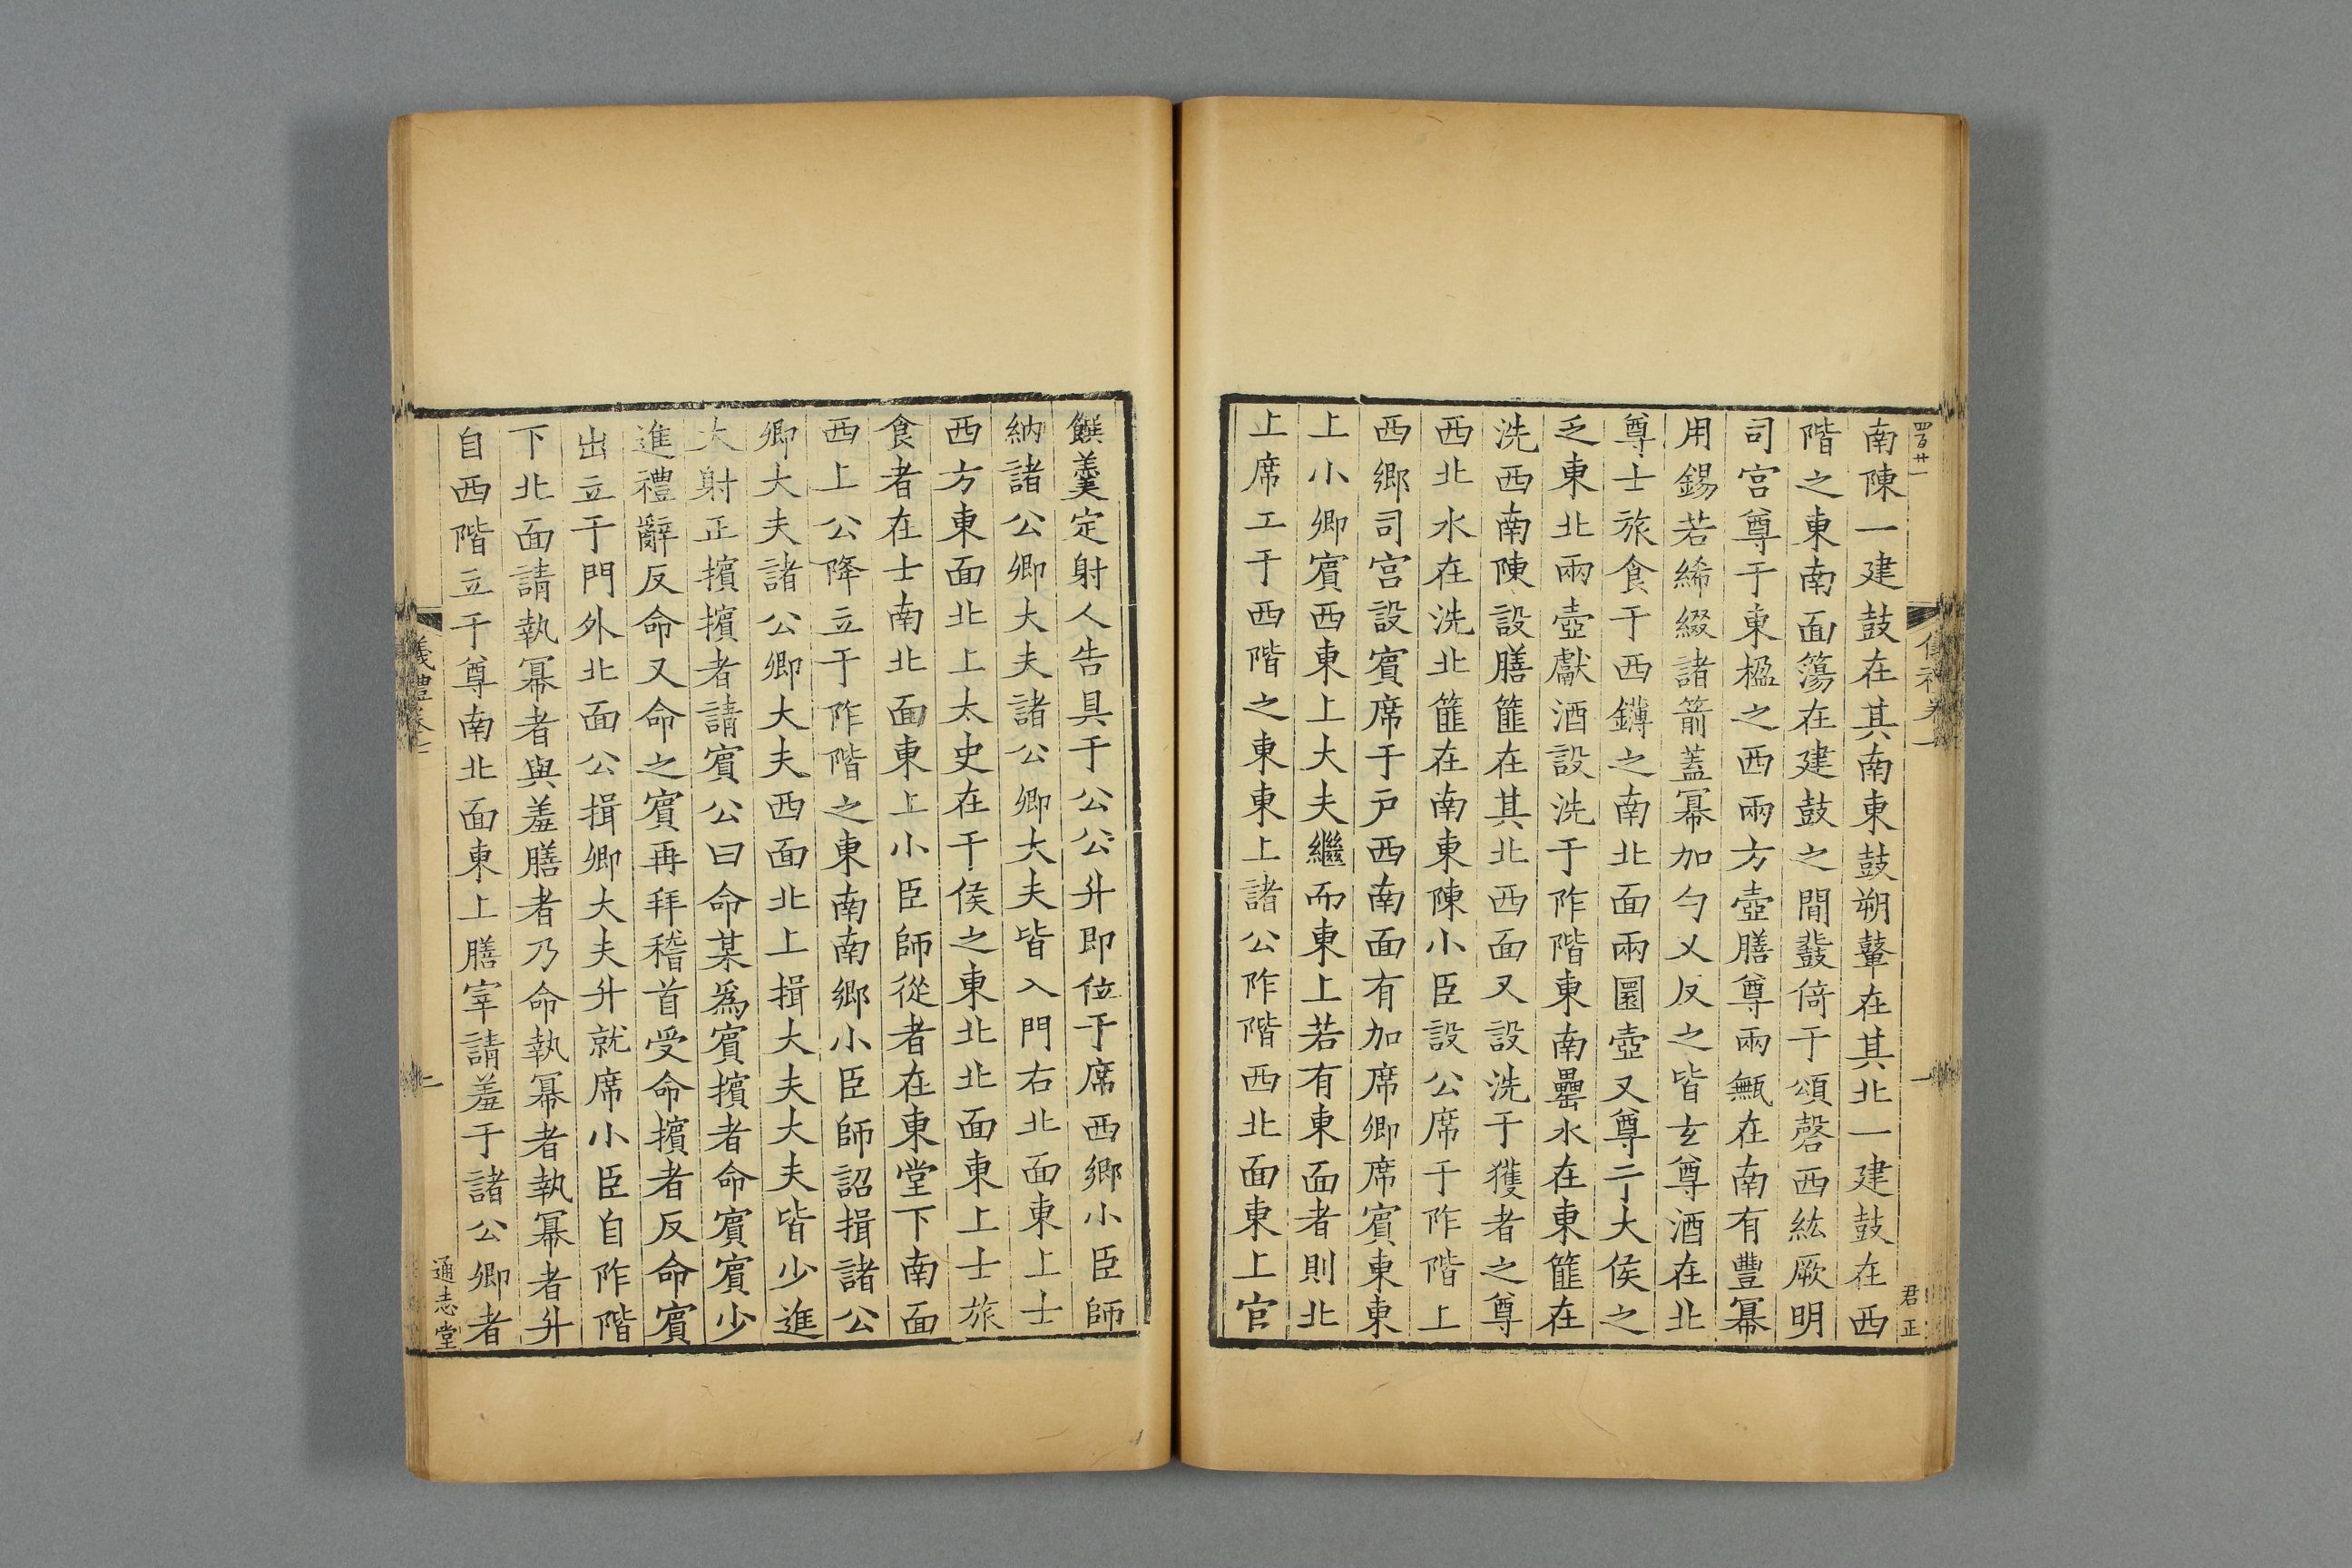 南陳一建鼓在其南東鼓朔鼙在其北一建鼓在西
階之東南面簜在建鼓之間鼗倚于頌磬西紘厥明
司宮尊于東楹之西兩方壺膳尊兩甒在南有豐冪
用錫若絺綴諸箭蓋冪加勺又反之皆玄尊酒在北
尊士旅食于西鑮之南北面兩圜壺又尊于大侯之
乏東北兩壺獻酒設洗于阼階東南罍水在東篚在
洗西南陳設膳篚在其北西面又設洗于獲者之尊
西北水在洗北篚在南東陳小臣設公席于阼階上
西鄉司宮設賓席于戶西南面有加席卿席賓東東
上小卿賓西東上大夫繼而東上若有東面者則北
上席工于西階之東東上諸公阼階西北面東上官
四百廿一
君正
饌羹定射人告具于公公升即位于席西鄉小臣師
納諸公卿大夫諸公卿大夫皆入門右北面東上士
西方東面北上太史在干侯之東北北面東上士旅
食者在士南北面東上小臣師從者在東堂下南面
西上公降立于阼階之東南南鄉小臣師詔揖諸公
卿大夫諸公卿大夫西面北上揖大夫大夫皆少進
大射正擯擯者請賓公曰命某為賓擯者命賓賓少
進禮辭反命又命之賓再拜稽首受命擯者反命賓
出立于門外北面公揖卿大夫升就席小臣自阼階
下北面請執冪者與羞膳者乃命執冪者執冪者升
自西階立于尊南北面東上膳宰請羞于諸公卿者
儀禮卷七
二
通志堂